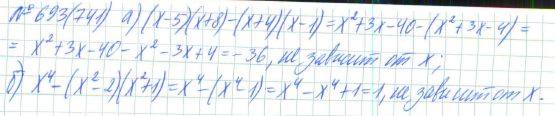 № 693(741) а) (x-5)(x+8)-(x+4)(x-1)=x²+3x-40-(x²+3x-4)=
= x²+3x-40-x²-3x+4=-36, не зависит от x;
б) x⁴-(x²-2)(x²+1)=x⁴-(x⁴-1)=x⁴-x⁴+1=1, не зависит от x.